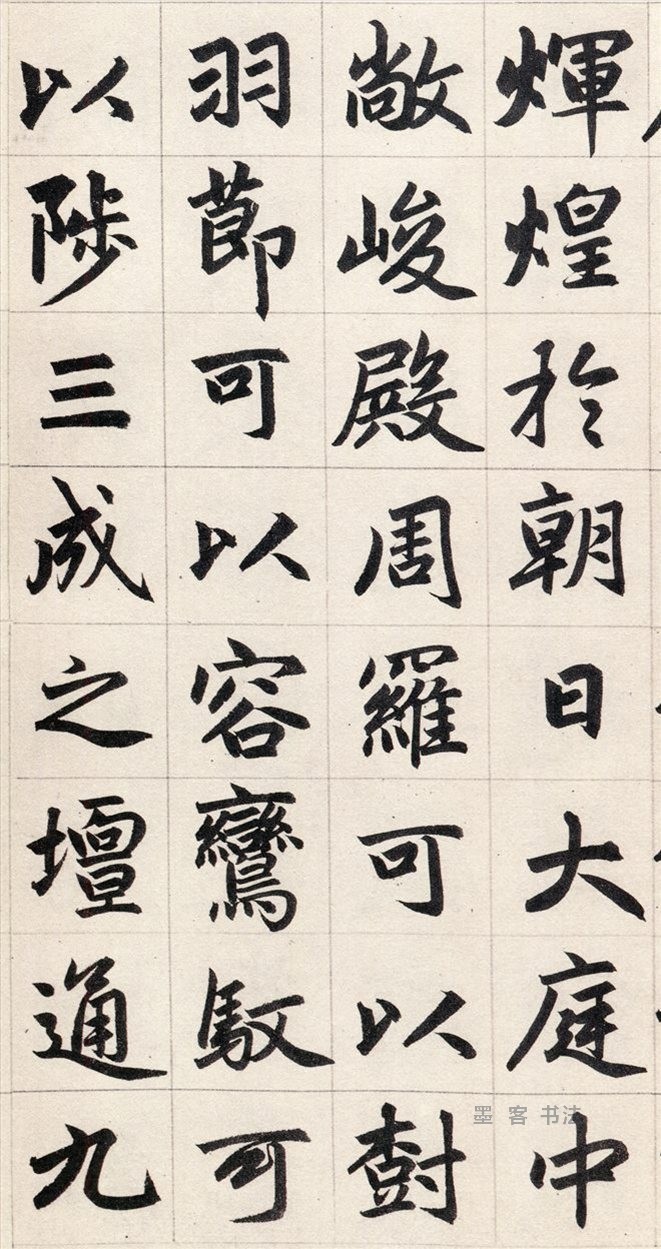 輝煌於朝日大庭中
敞峻殿周羅可以樹
羽節可以容鸞馭可
以陟三成之壇通九
墨客书法